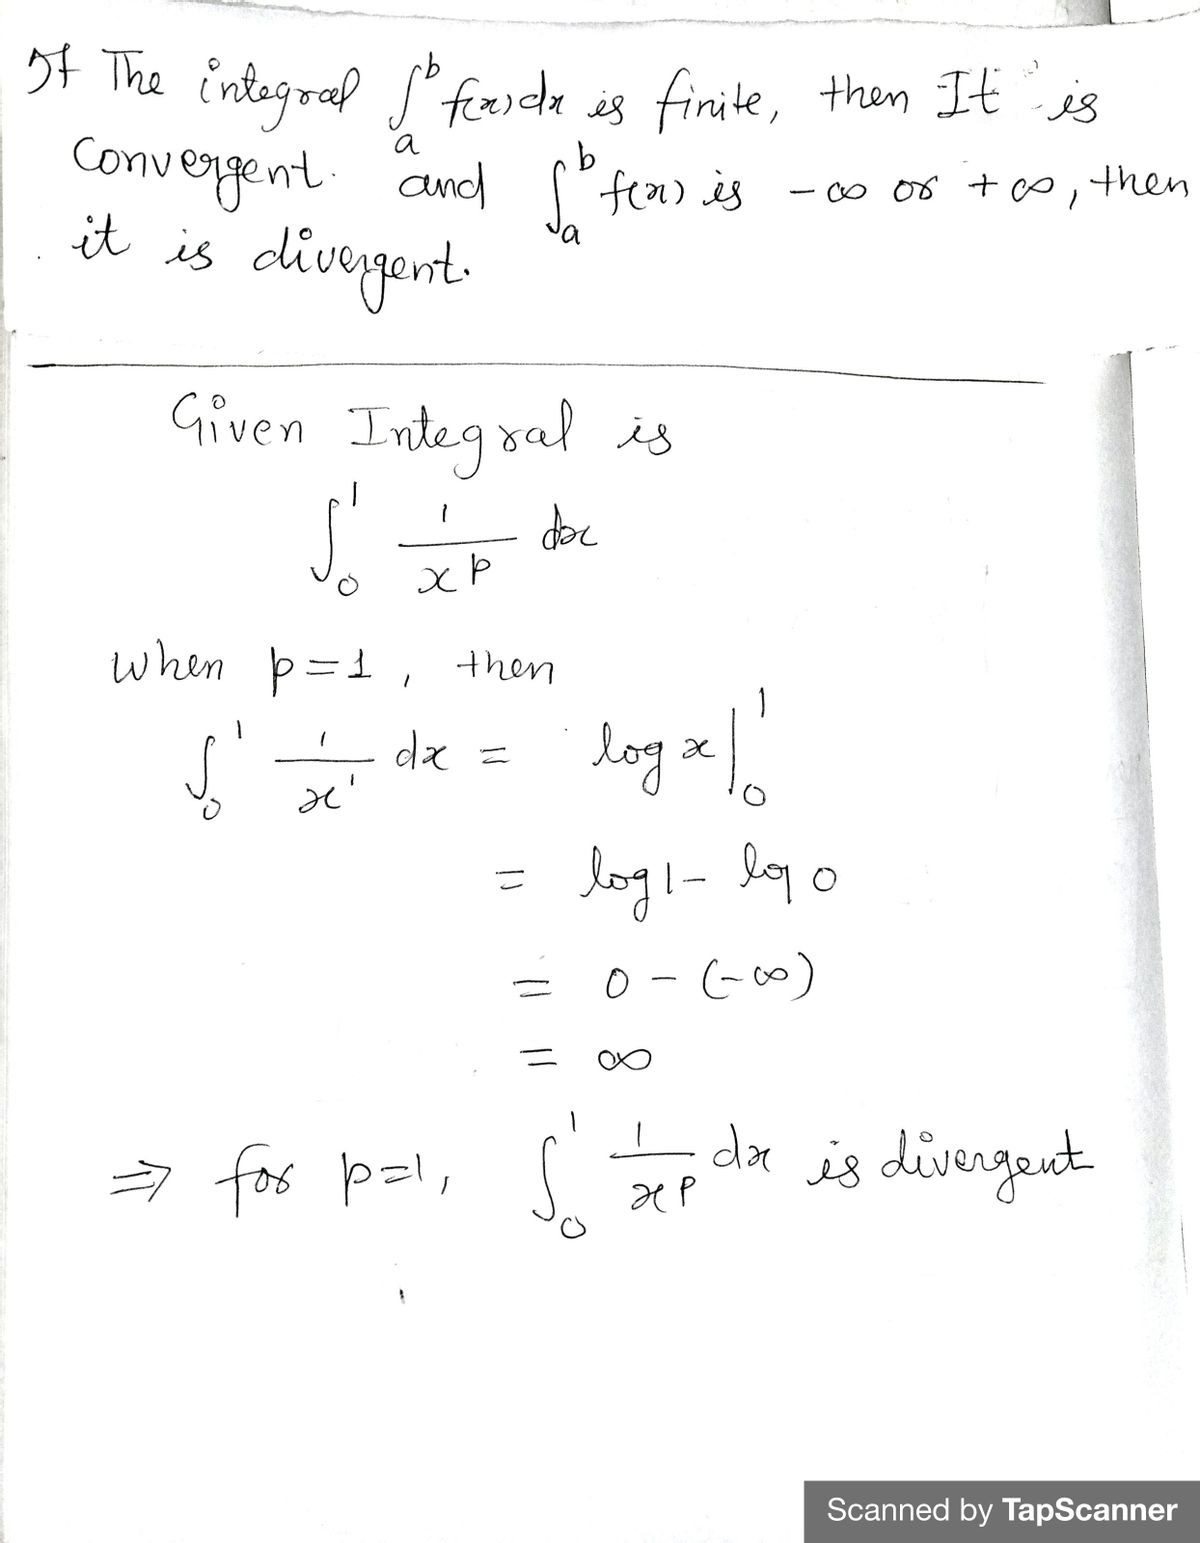 If The integral ∫_a^b f(x)dx is finite, then It is
Convergent. and ∫_a^b f(x) is -∞ or +∞, then
it is divergent.
Given Integral is
∫_0^1 1/x^p dx
when p=1, then
∫_0^1 1/x^1 dx = log x|_0^1
= log 1 - log 0
= 0 - (-∞)
= ∞
⇒ for p=1, ∫_0^1 1/x^p dx is divergent
Scanned by TapScanner